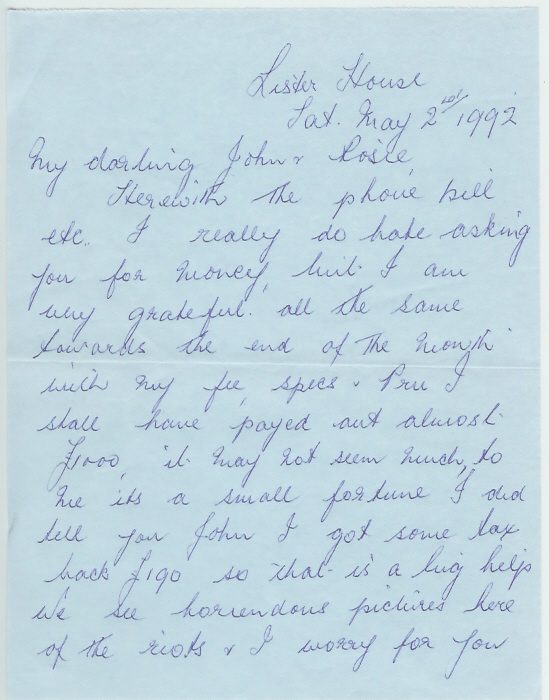 Lister House
Sat. May 2nd/1992
My darling John & Rosie
Herewith the phone bill
etc. I really do hate asking
you for money, but I am
very grateful. all the same
towards the end of the month
with my fee specs & Pru I
shall have payed out almost
£1000, it may not seem much, to
me its a small fortune I did
tell you John I got some tax
back £190 so that is a big help
We see horrendous pictures here
of the riots & I worry for you